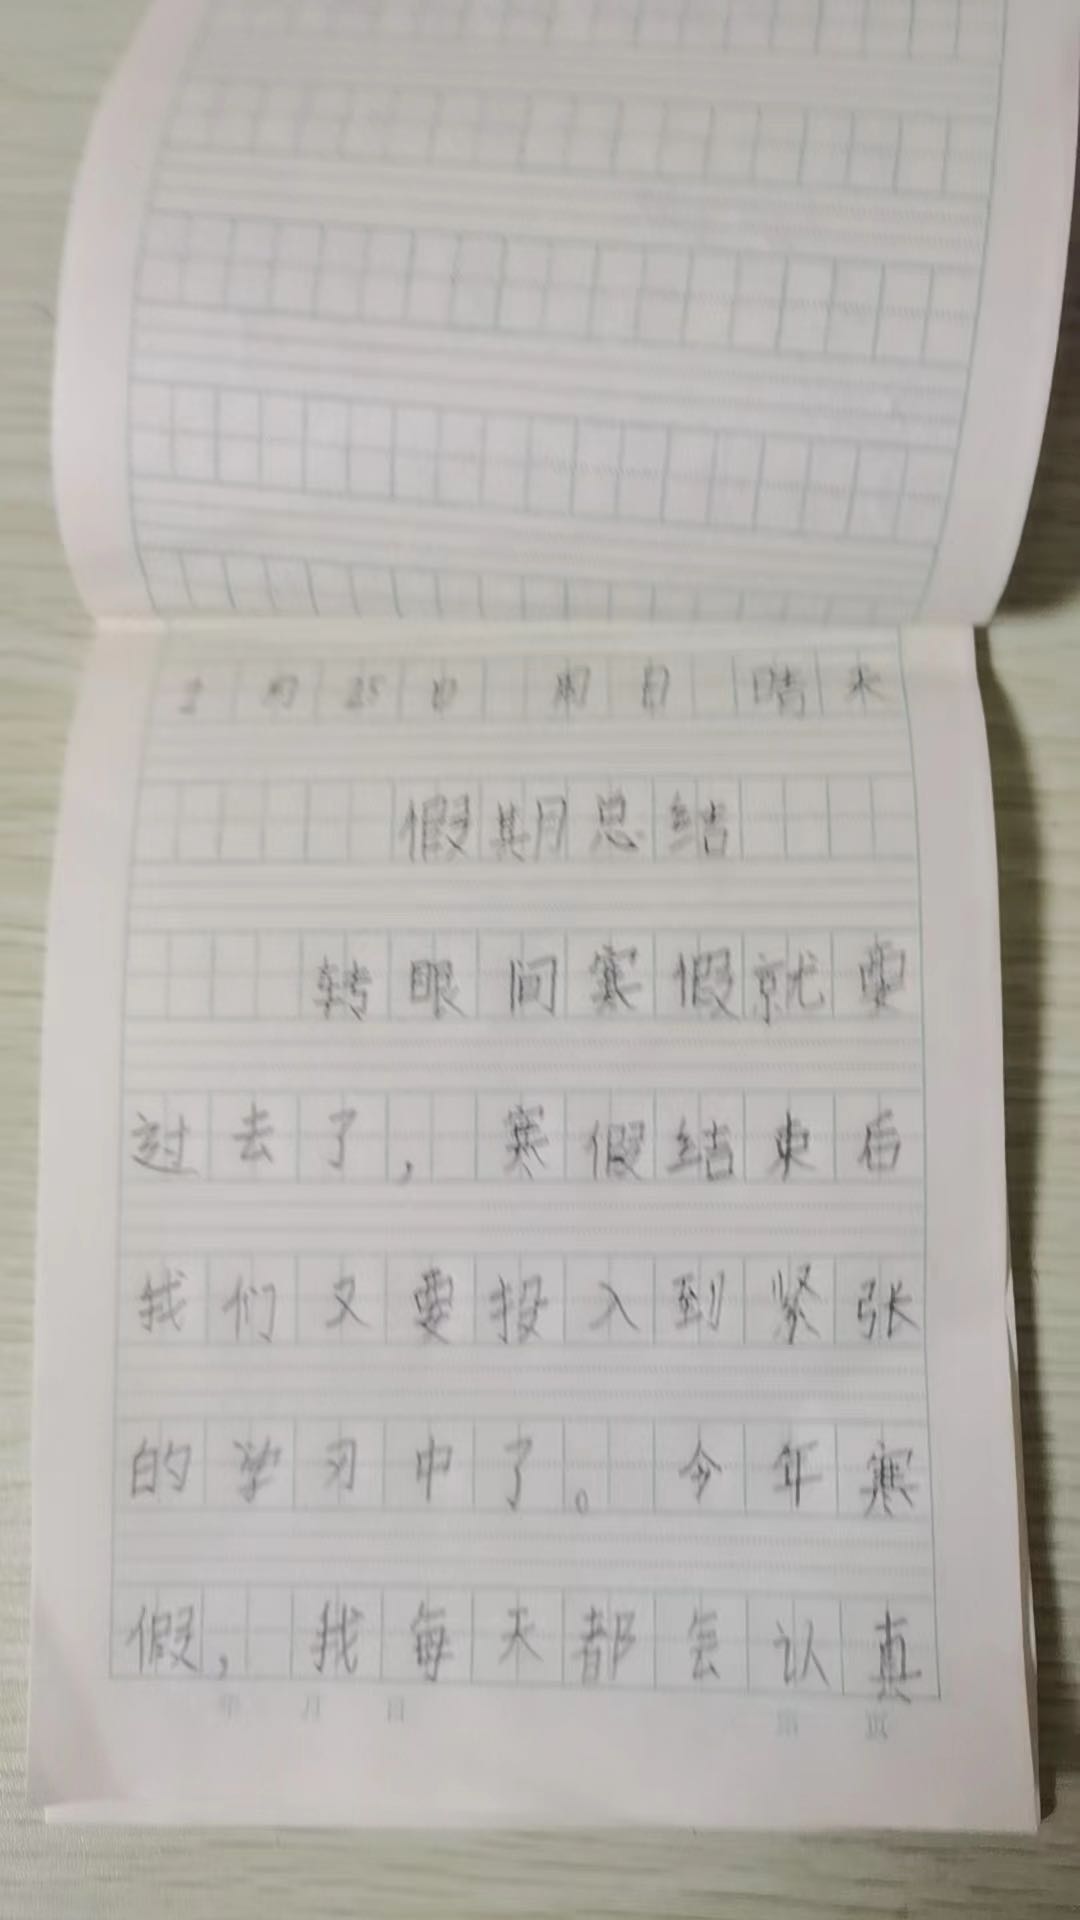 2月25日 周日 晴天
假期总结
转眼间寒假就要
过去了，寒假结束后
我们又要投入到紧张
的学习中了。今年寒
假，我每天都会认真
年 月 日 第 页